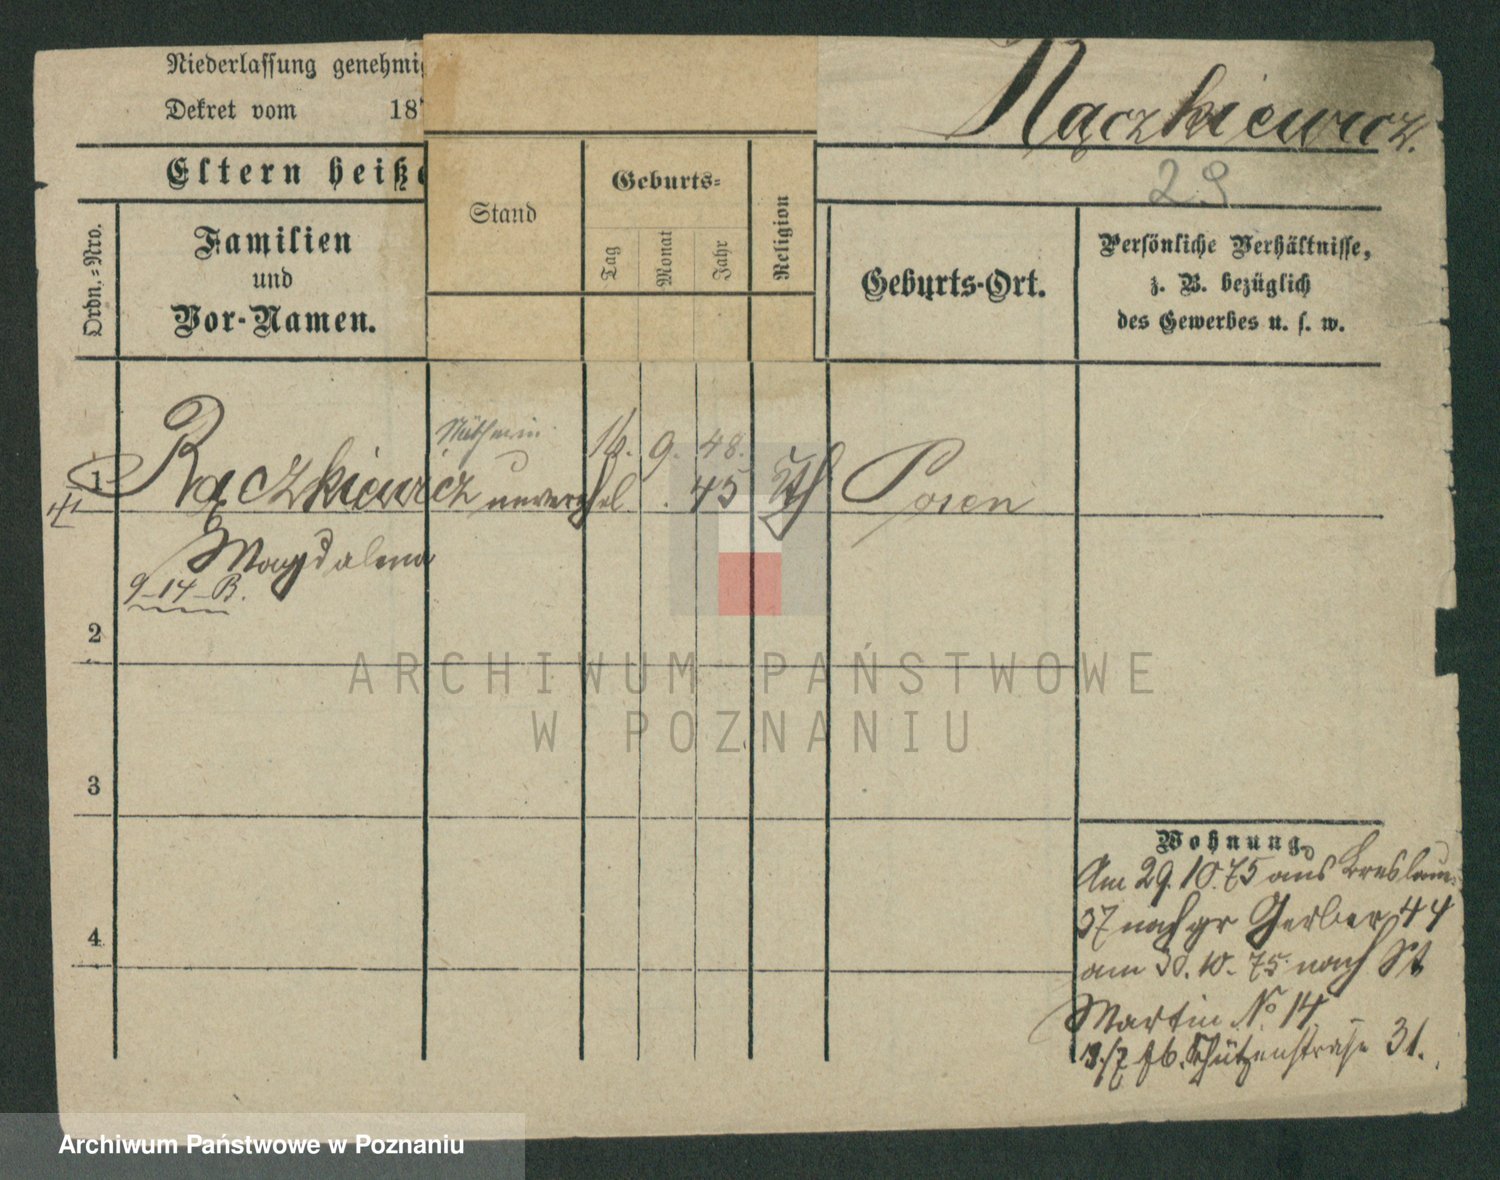 Niederlassung genehmig
Dekret vom 187
Rączkiewicz.
29
Eltern heiße
Ordn.-Nro.
Familien
und
Vor-Namen.
Stand
Geburts-
Tag
Monat
Jahr
Religion
Geburts-Ort.
Persönliche Verhältnisse,
z. B. bezüglich
des Gewerbes u. s. w.
Näherin 9. 48.
1 Rączkiewicz unverehel. 45 kth Posen
Magdalena
9-14-B.
2
3
4
Wohnung
Am 29.10.75 aus Breslau
37 nach gr Gerber 44
am 30.10.75 nach St
Martin No 14
Schützenstraße 31.
ARCHIWUM PAŃSTWOWE
W POZNANIU
Archiwum Państwowe w Poznaniu